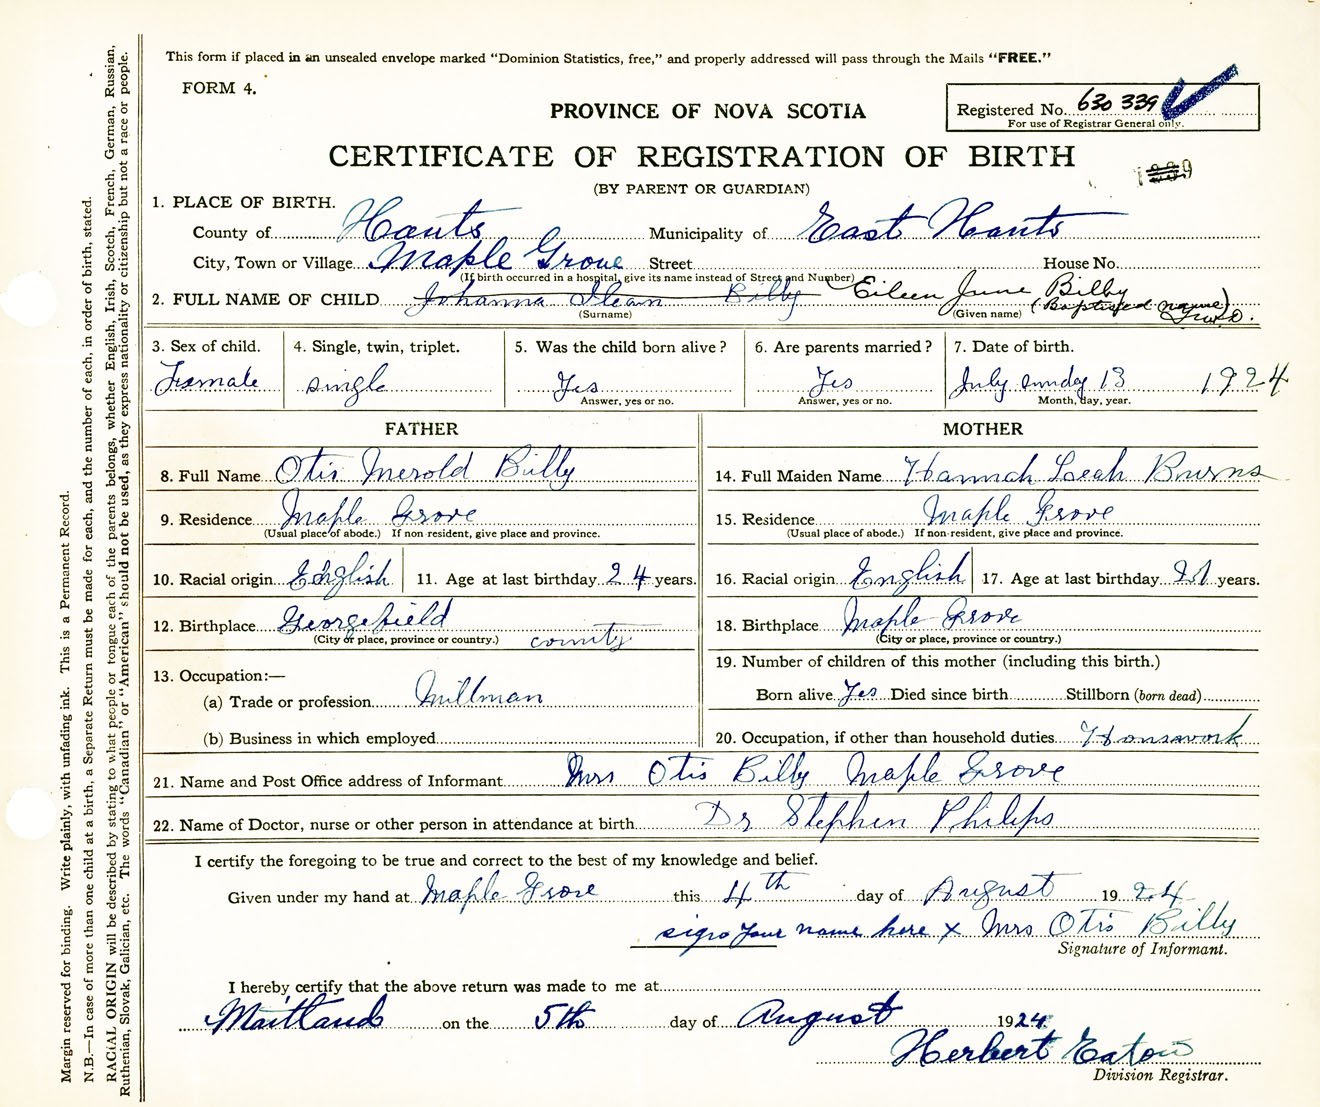 This form if placed in an unsealed envelope marked "Dominion Statistics, free," and properly addressed will pass through the Mails "FREE."
FORM 4.
PROVINCE OF NOVA SCOTIA
Registered No. 630 339
For use of Registrar General only.
CERTIFICATE OF REGISTRATION OF BIRTH
(BY PARENT OR GUARDIAN)
1. PLACE OF BIRTH.
County of Hants Municipality of East Hants
City, Town or Village Maple Grove Street House No.
(If birth occurred in a hospital, give its name instead of Street and Number)
2. FULL NAME OF CHILD Johanna Ileam Bilby Eileen June Bilby
(Surname) (Given name) (Baptised name)
3. Sex of child. 4. Single, twin, triplet. 5. Was the child born alive? 6. Are parents married? 7. Date of birth.
Female single Yes Yes July sunday 13 1924
Answer, yes or no. Answer, yes or no. Month, day, year.
FATHER MOTHER
8. Full Name Otis Merold Bilby 14. Full Maiden Name Hannah Leah Burns
9. Residence Maple Grove 15. Residence Maple Grove
(Usual place of abode.) If non-resident, give place and province. (Usual place of abode.) If non-resident, give place and province.
10. Racial origin English 11. Age at last birthday 24 years. 16. Racial origin English 17. Age at last birthday 21 years.
12. Birthplace Georgefield 18. Birthplace Maple Grove
(City or place, province or country.) county (City or place, province or country.)
13. Occupation:— 19. Number of children of this mother (including this birth.)
(a) Trade or profession Millman Born alive Yes Died since birth Stillborn (born dead)
(b) Business in which employed 20. Occupation, if other than household duties Houswork
21. Name and Post Office address of Informant Mrs Otis Bilby Maple Grove
22. Name of Doctor, nurse or other person in attendance at birth Dr Stephen Philips
I certify the foregoing to be true and correct to the best of my knowledge and belief.
Given under my hand at Maple Grove this 4th day of August 1924
sign your name here x Mrs Otis Bilby
Signature of Informant.
I hereby certify that the above return was made to me at
Maitland on the 5th day of August 1924
Herbert Eaton
Division Registrar.
Margin reserved for binding. Write plainly, with unfading ink. This is a Permanent Record.
N.B.—In case of more than one child at a birth, a Separate Return must be made for each, and the number of each, in order of birth, stated.
RACIAL ORIGIN will be described by stating to what people or tongue each of the parents belongs, whether English, Irish, Scotch, French, German, Russian,
Ruthenian, Slovak, Galician, etc. The words "Canadian" or "American" should not be used, as they express nationality or citizenship but not a race or people.